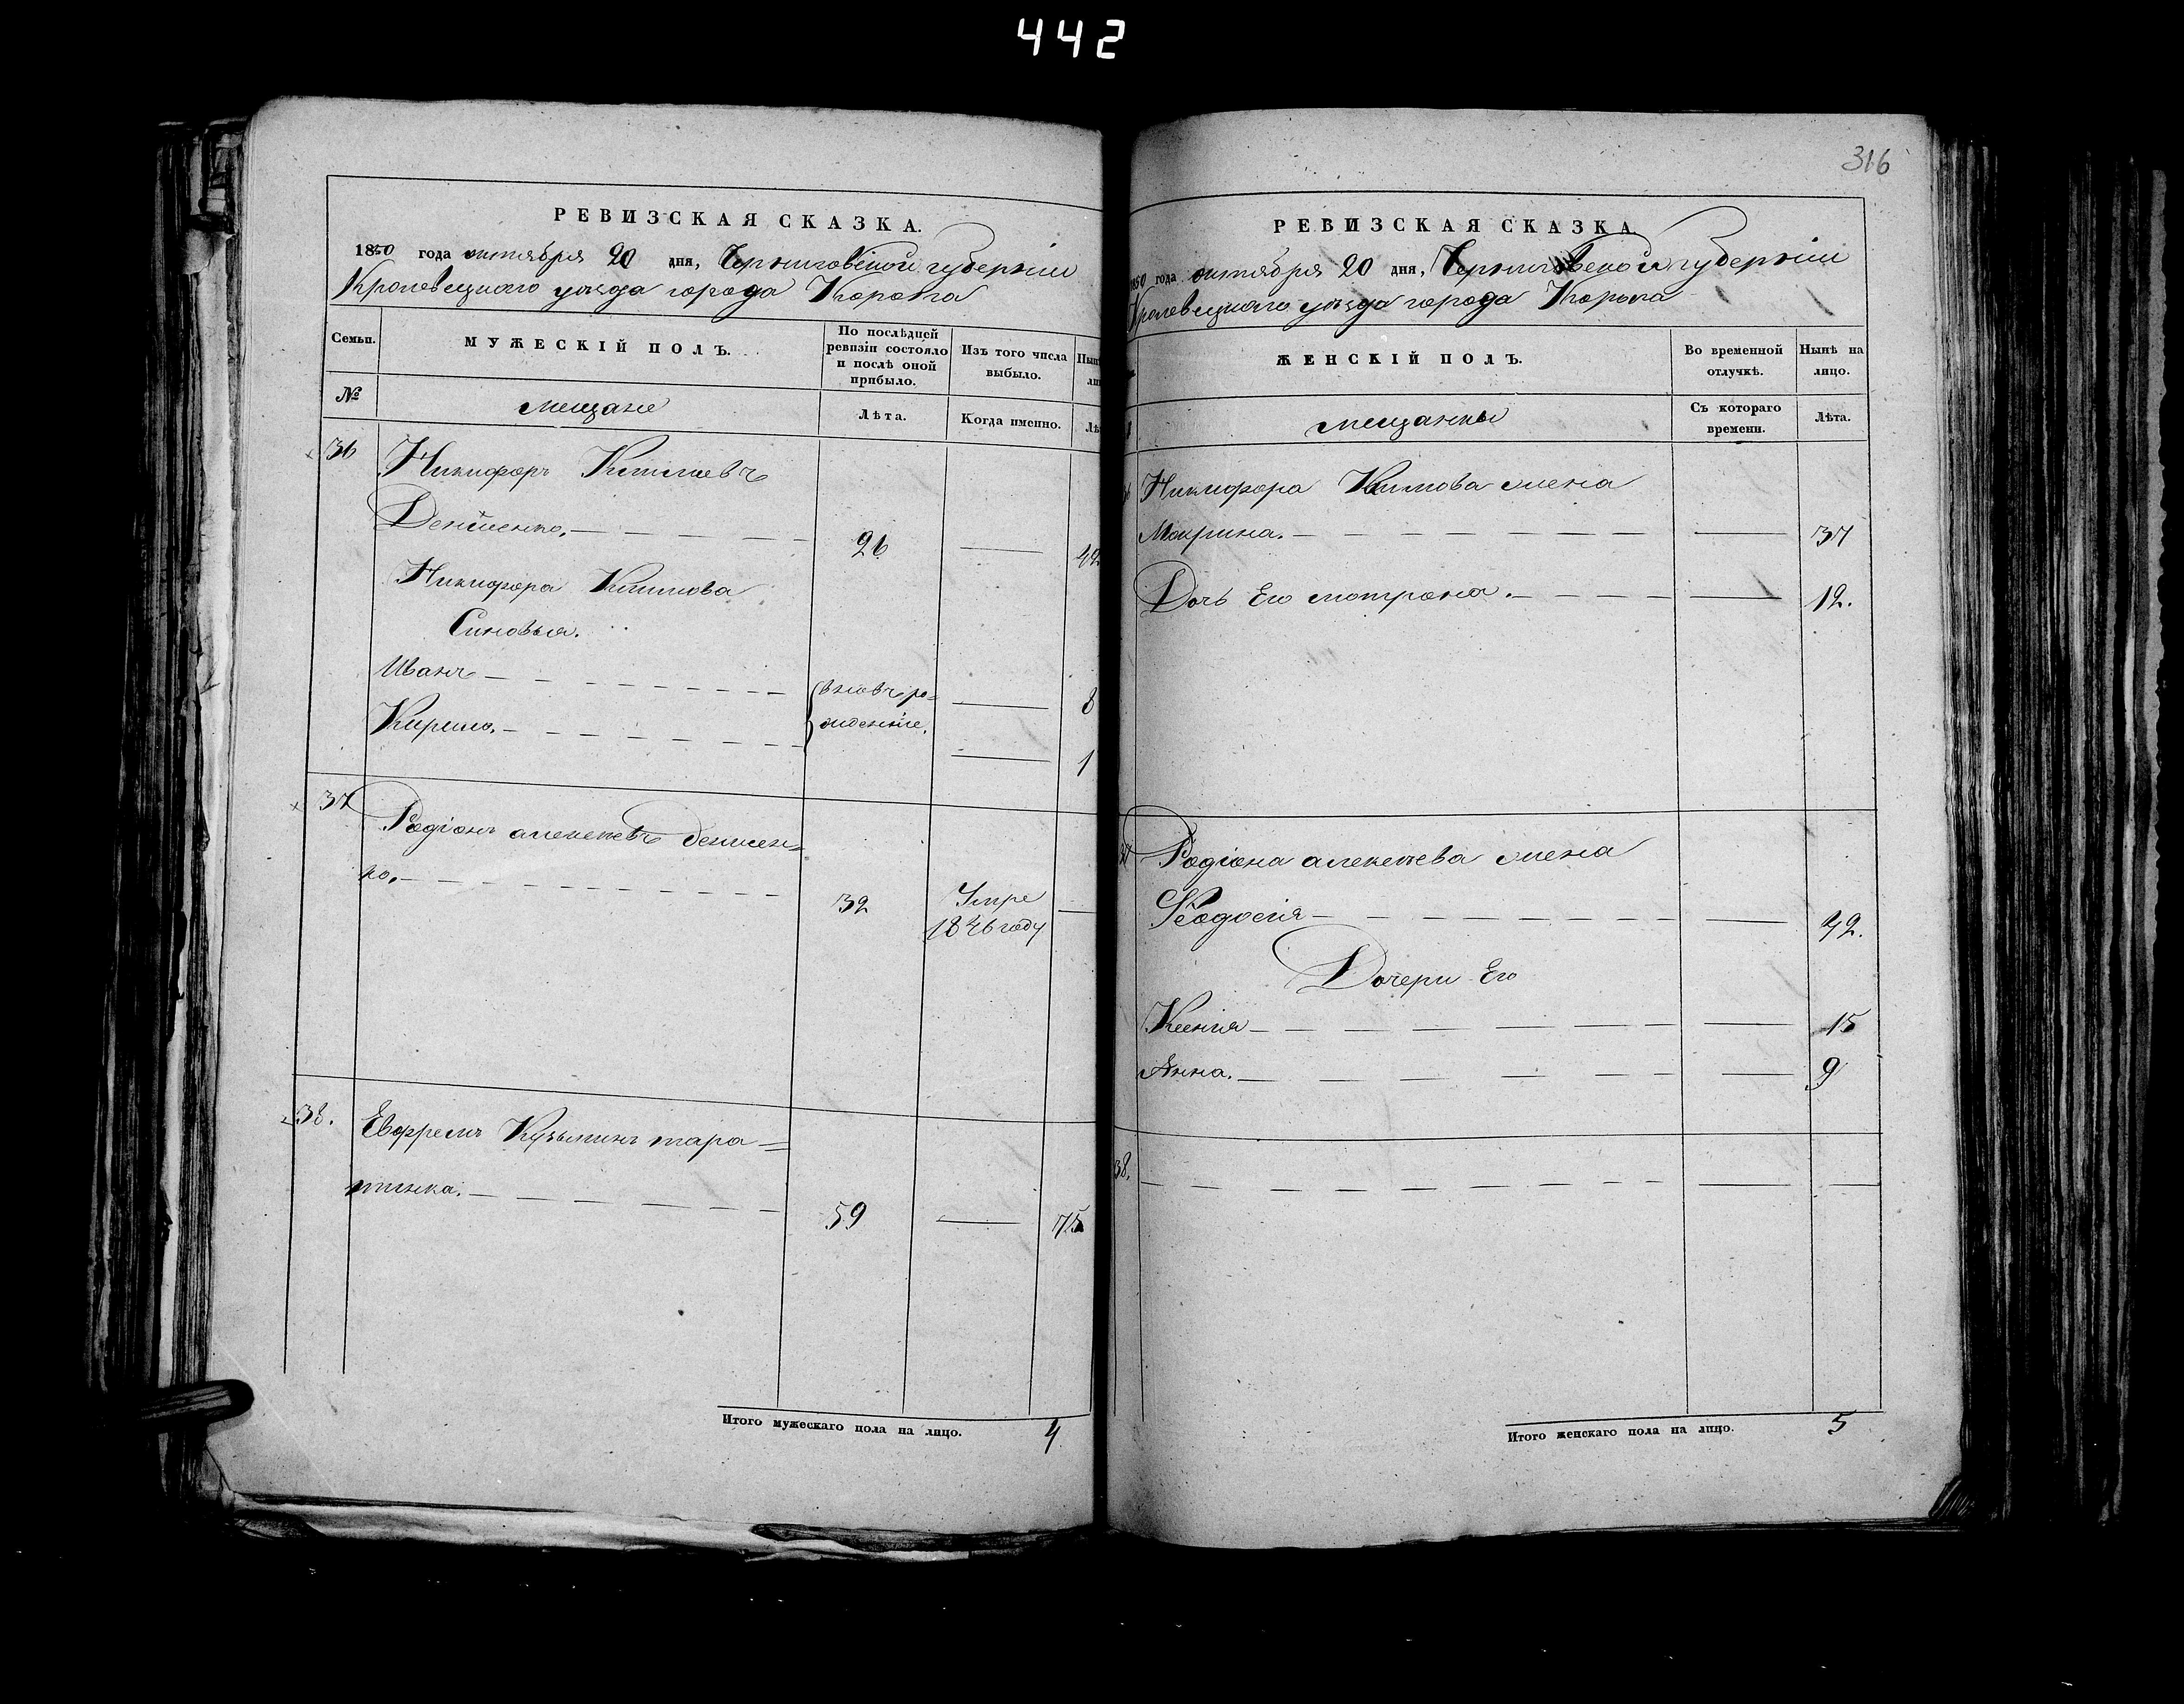 442
316
РЕВИЗСКАЯ СКАЗКА.
1850 года октября 20 дня, Черниговской губернiи
Кролевецкого уѣзда города Коропа
Семьи.
МУЖЕСКIЙ ПОЛЪ.
По послѣдней ревизiи состояло и послѣ оной прибыло.
Изъ того числа выбыло.
№
мещане
Лѣта.
Когда именно.
36 Никифоръ Климовъ
Денисенко. 26 42
Никифора Климова
Сыновья.
Иванъ вновь ро= 8
Кирило. жденние. 1
37 Родiонъ алексѣевъ денисен=
ко. 32 Умре
1846 году
38. Евфремъ Кузьминъ тара=
тинка. 59 75
Итого мужескаго пола на лицо. 4
РЕВИЗСКАЯ СКАЗКА.
1850 года октября 20 дня, Черниговской губернiи
Кролевецкого уѣзда города Коропа
ЖЕНСКIЙ ПОЛЪ.
Во временной отлучкѣ.
Нынѣ на лицо.
мещанки
Съ котораго времени.
Лѣта.
Никифора Климова жена
Макрина. 37
Дочь Его мотрона. 12.
37 Родiона алексѣева жена
Феодосiя 42.
Дочери Его
Ксенiя 15
Анна. 9
38.
Итого женскаго пола на лицо. 5